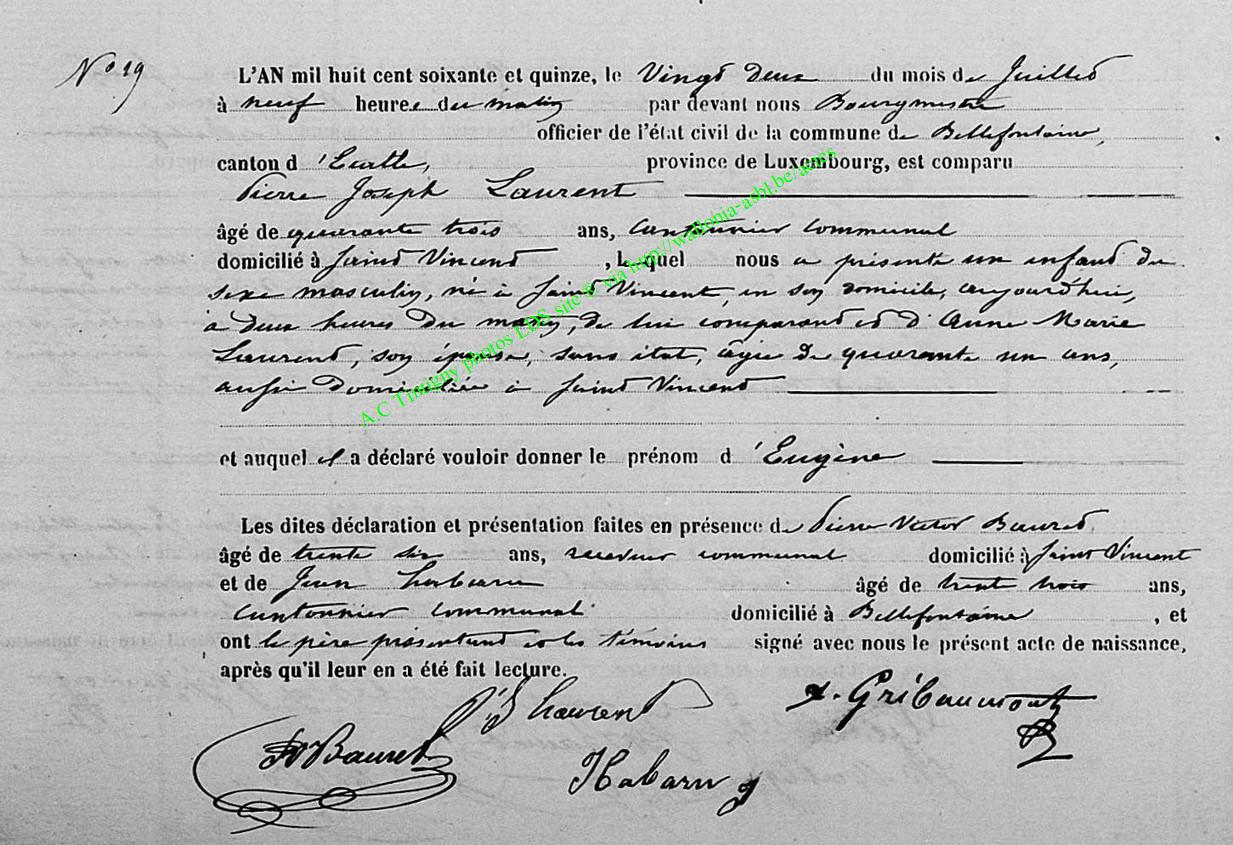 N° 19
L'AN mil huit cent soixante et quinze, le Vingt deux du mois de Juillet
à neuf heures du matin par devant nous Bourgmestre
officier de l'état civil de la commune de Bellefontaine,
canton d'Etalle, province de Luxembourg, est comparu
Pierre Joseph Laurent
âgé de quarante trois ans, cantonnier communal
domicilié à Saint Vincent, Lequel nous a présenté un enfant du
sexe masculin, né à Saint Vincent, en son domicile, aujourd'hui,
à deux heures du matin, de lui comparant et d'Anne Marie
Laurent, son épouse, sans état, âgée de quarante un ans,
aussi domiciliée à Saint Vincent
et auquel il a déclaré vouloir donner le prénom d'Eugène
Les dites déclaration et présentation faites en présence de Pierre Victor Bauret,
âgé de trente six ans, receveur communal domicilié à Saint Vincent
et de Jean Habaru âgé de trent trois ans,
cantonnier communal domicilié à Bellefontaine, et
ont le père présentant et les témoins signé avec nous le présent acte de naissance,
après qu'il leur en a été fait lecture.
PJ Laurent
Gribaumont
PVBauret
JHabaru
A.C Tintigny photos LDS site © via http://wallonia-asbl.be/actes